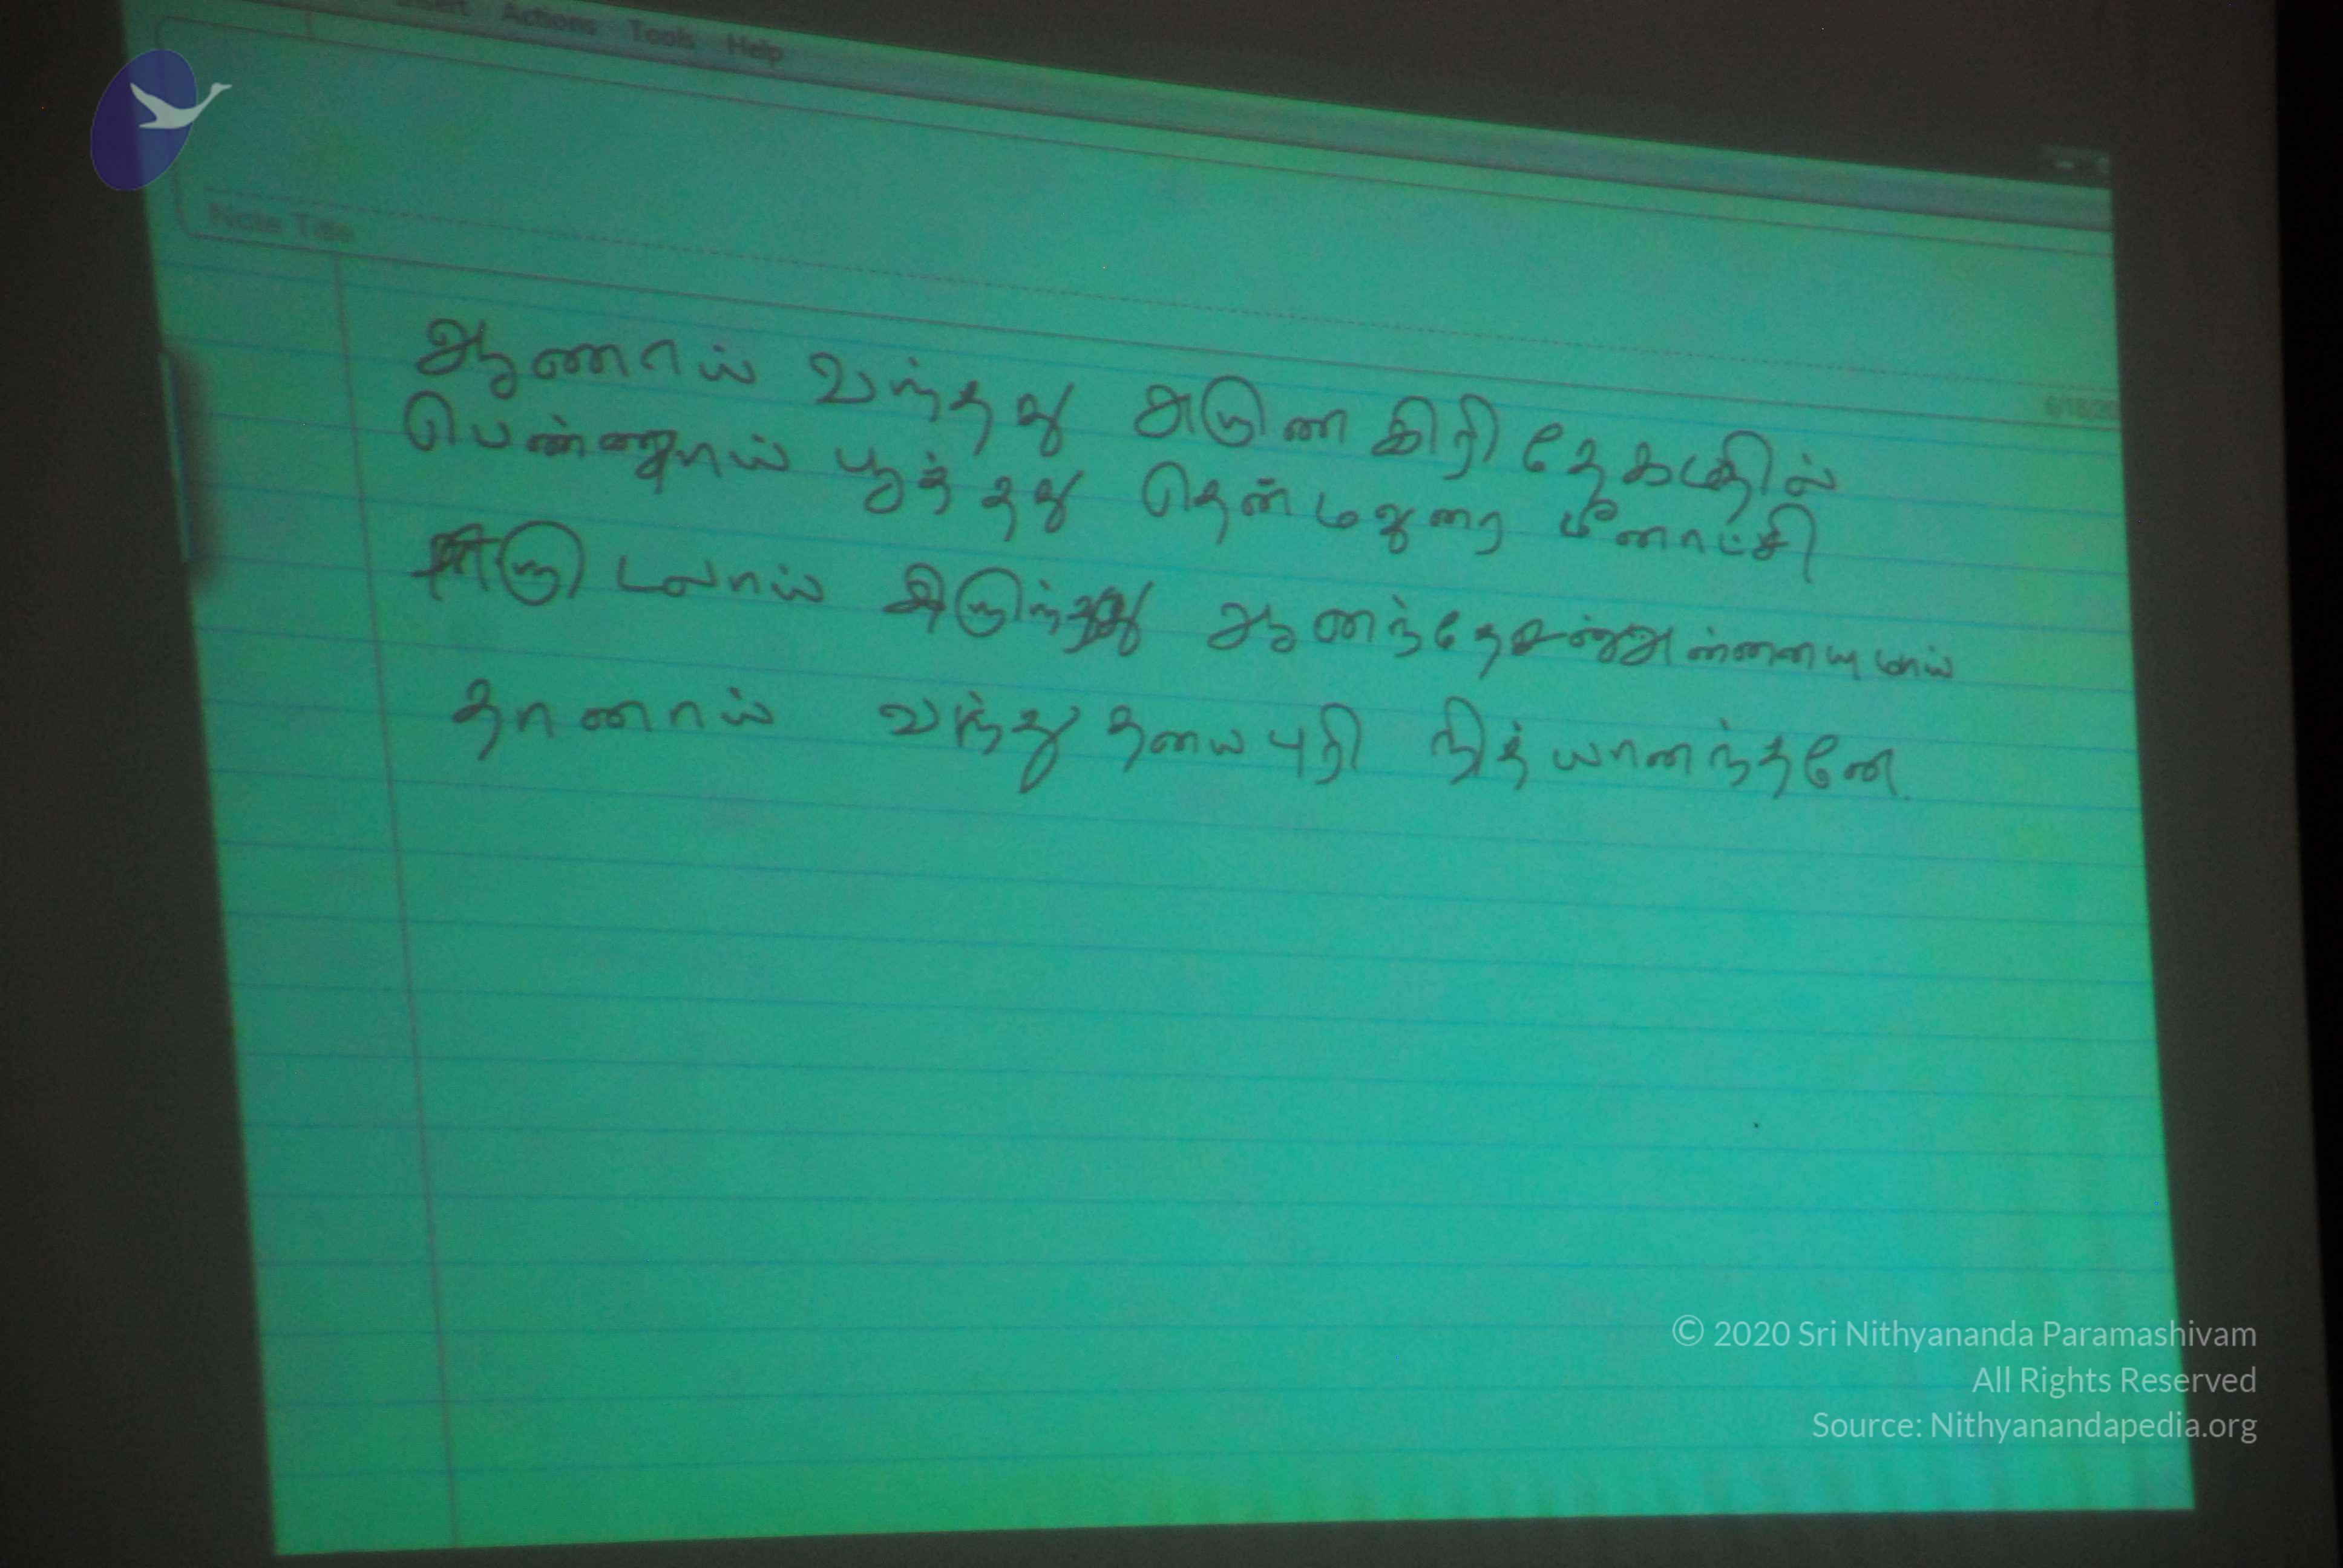 Insert Actions Tools Help
Note Title
ஆணாய் வந்தது அருண கிரி தேகமதில்
பெண்ணாய் பூத்தது தென்மதுரை மீனாட்சி
டலாய் இருந்தது ஆனந்தேசன்அன்னையுமாய்
தானாய் வந்து தயைபுரி நித்யானந்தனே
© 2020 Sri Nithyananda Paramashivam
All Rights Reserved
Source: Nithyanandapedia.org